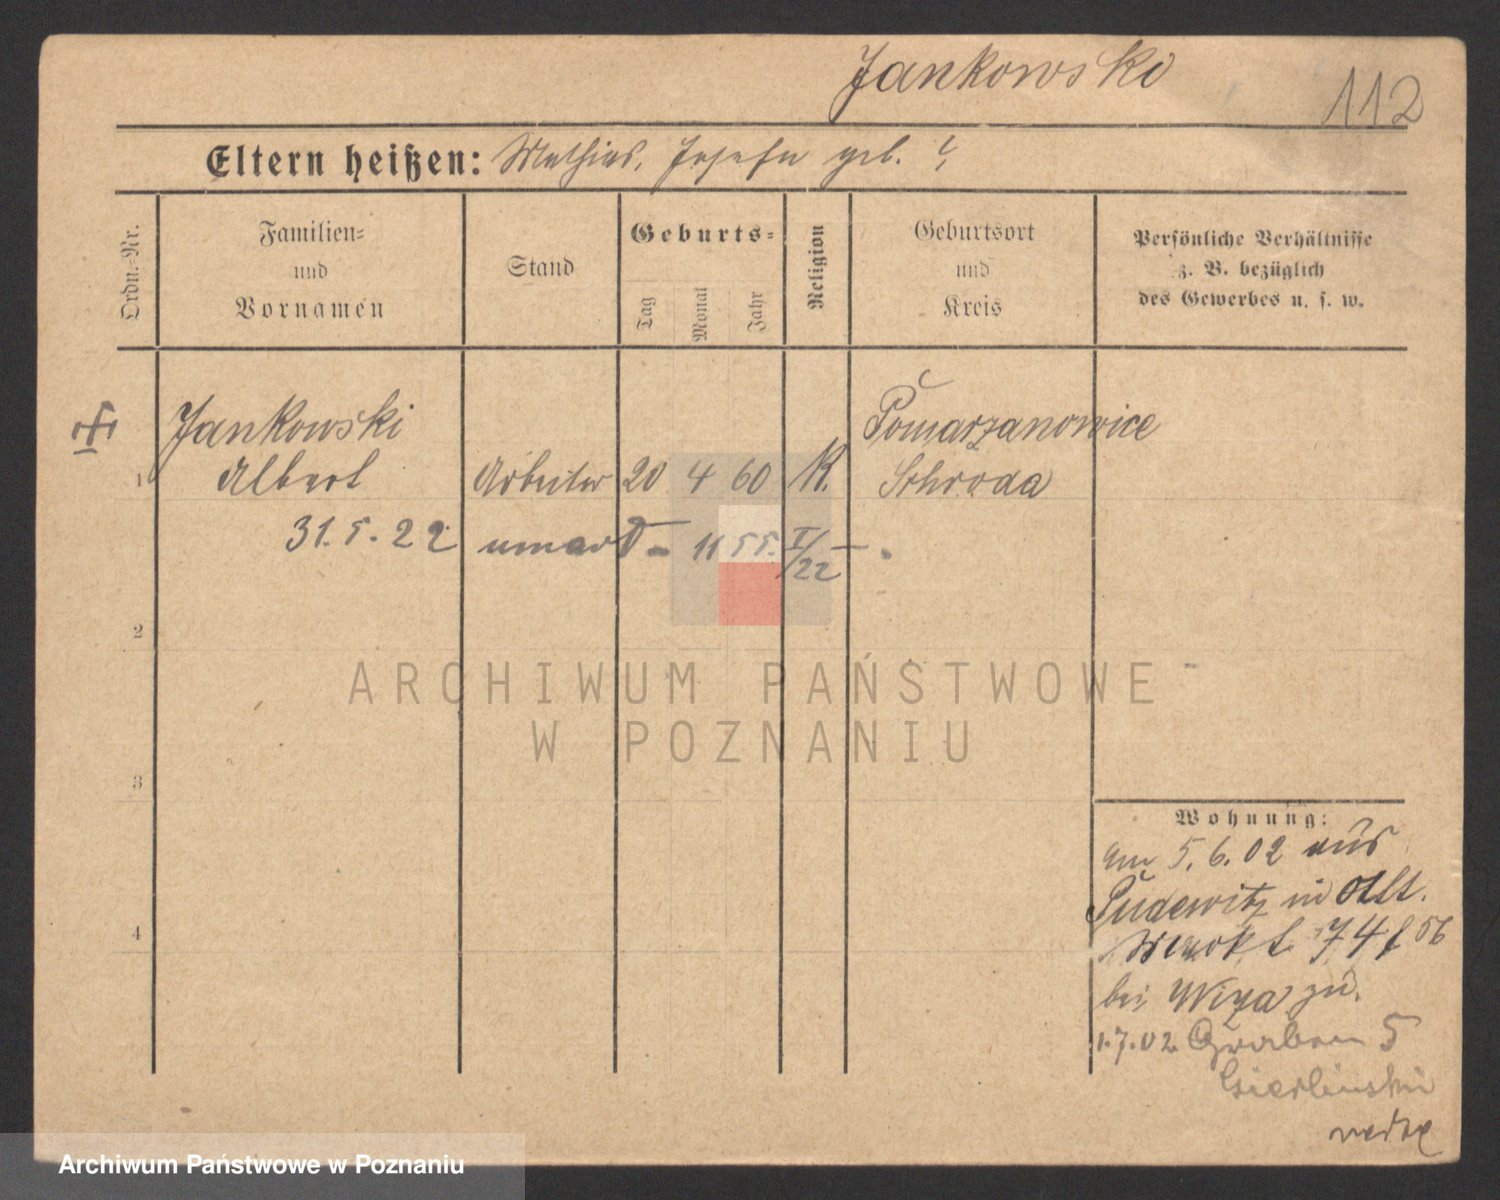 Jankowski
112
Eltern heißen: Mathias, Josefa geb. ?
Ordn.-Nr.
Familien-
und
Vornamen
Stand
Geburts-
Tag
Monat
Jahr
Religion
Geburtsort
und
Kreis
Persönliche Verhältnisse
z. B. bezüglich
des Gewerbes u. s. w.
Jankowski
Pomarzanowice
1 Albert Arbeiter 20 4 60 K. Schroda
31.5.22 umarł - 11 55. I/22 -
2
3
4
ARCHIWUM PAŃSTWOWE
W POZNANIU
Wohnung:
am 5.6.02 aus
Pudewitz in
74
bei zu.
1.7.02 Graben 5
Gierlinski
Archiwum Państwowe w Poznaniu